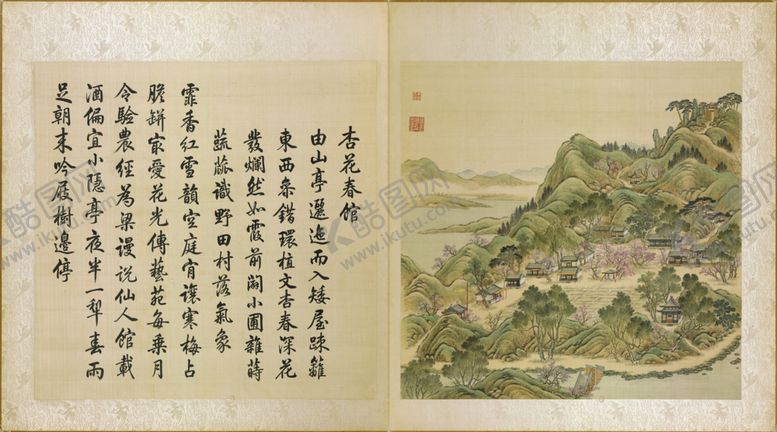 杏花春館
由山亭邐迤而入矮屋疎籬
東西叅錯環植文杏春深花
發爛然如霞前闢小圃雜蒔
蔬蓏識野田村落氣象
霏香紅雪韻空庭肎讓寒梅占
膽缾㝡愛花光傳藝苑每乗月
令驗農經為梁漫說仙人館載
酒偏宜小隱亭夜半一犂春雨
足朝来吟屐樹邊停
酷图网
www.ikutu.com
酷图网
www.ikutu.com